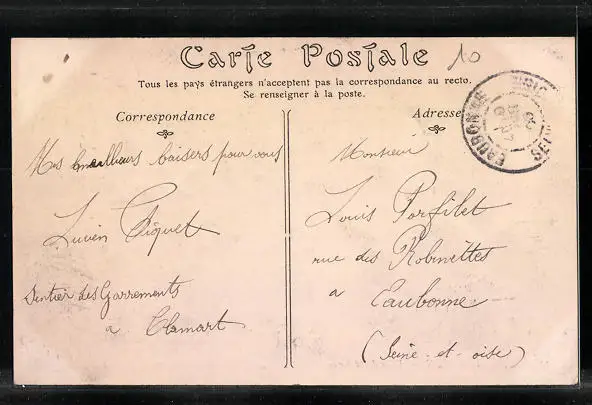 Carte Postale
10
Tous les pays étrangers n'acceptent pas la correspondance au recto.
Se renseigner à la poste.
Correspondance
Mes meilleurs baisers pour vous
Lucien Piquet
Sentier des Garrements
à Clamart
Adresse
Monsieur
Louis Porfilet
rue des Robinettes
a Eaubonne
(Seine et oise)
EAUBONNE